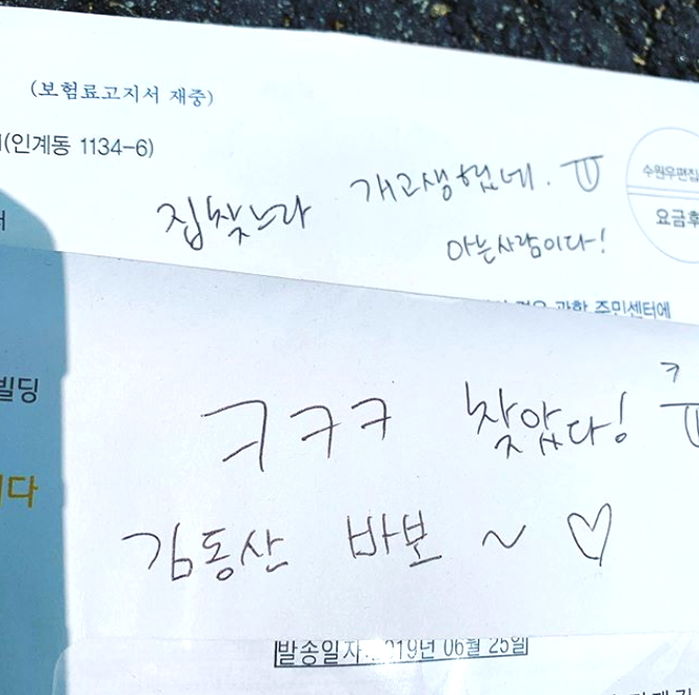 (보험료고지서 재중)
(인계동 1134-6)
수원우편집
요금후
집찾느라 개고생했네. ㅠ
아는사람이다-!
관할 주민센터에
빌딩
ㅋㅋㅋ 찾았다! ㅋ
다
김동산 바보 ~ ♡
발송일자: 2019년 06월 25일